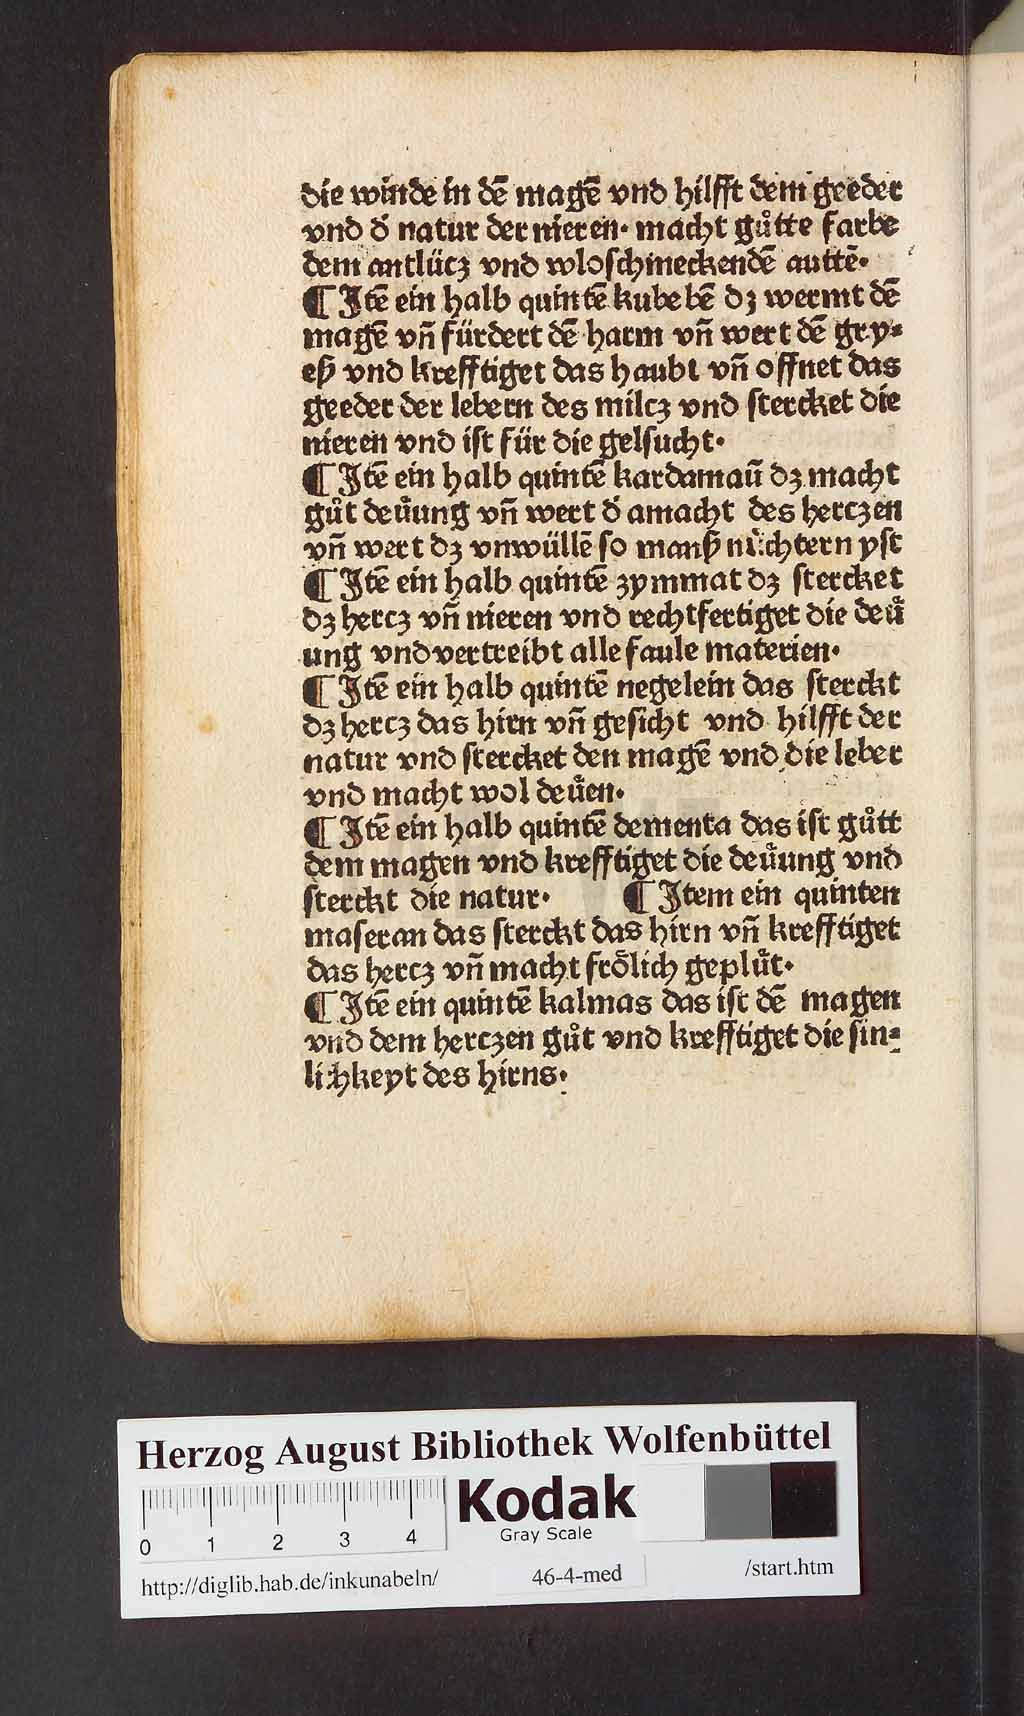 die winde in dē magē vnd hilfft dem geeder
vnd d̓ natur der nieren· macht gůtte farbe
dem antlücz vnd wloschmeckendē auttē·
¶ Itē ein halb quintē kubebē dʒ wermt dē
magē vn̄ fürdert dē harm vn̄ wert dē gry⸗
eß vnd krefftiget das haubt vn̄ offnet das
geeder der lebern des milcz vnd stercket die
nieren vnd ist für die gelsucht·
¶ Itē ein halb quintē kardamau̅ dʒ macht
gůt deůung vn̄ wert d̓ amacht des herczen
vn̄ wert dʒ vnwüllē so manß nůchtern yst
¶ Itē ein halb quintē zymmat dʒ stercket
dʒ hercz vn̄ nieren vnd rechtfertiget die deů
ung vnd vertreibt alle faule materien·
¶ Itē ein halb quintē negelein das sterckt
dʒ hercz das hirn vn̄ gesicht vnd hilfft der
natur vnd stercket den magē vnd die leber
vnd macht wol deůen·
¶ Itē ein halb quintē dementa das ist gůtt
dem magen vnd krefftiget die deůung vnd
sterckt die natur· ¶ Item ein quinten
maseran das sterckt das hirn vn̄ krefftiget
das hercz vn̄ macht froͤlich geplůt·
¶ Itē ein quintē kalmas das ist dē magen
vnd dem herczen gůt vnd krefftiget die sin⸗
lichkeyt des hirns·
Herzog August Bibliothek Wolfenbüttel
Kodak
Gray Scale
0 1 2 3 4
http://diglib.hab.de/inkunabeln/ 46-4-med /start.htm